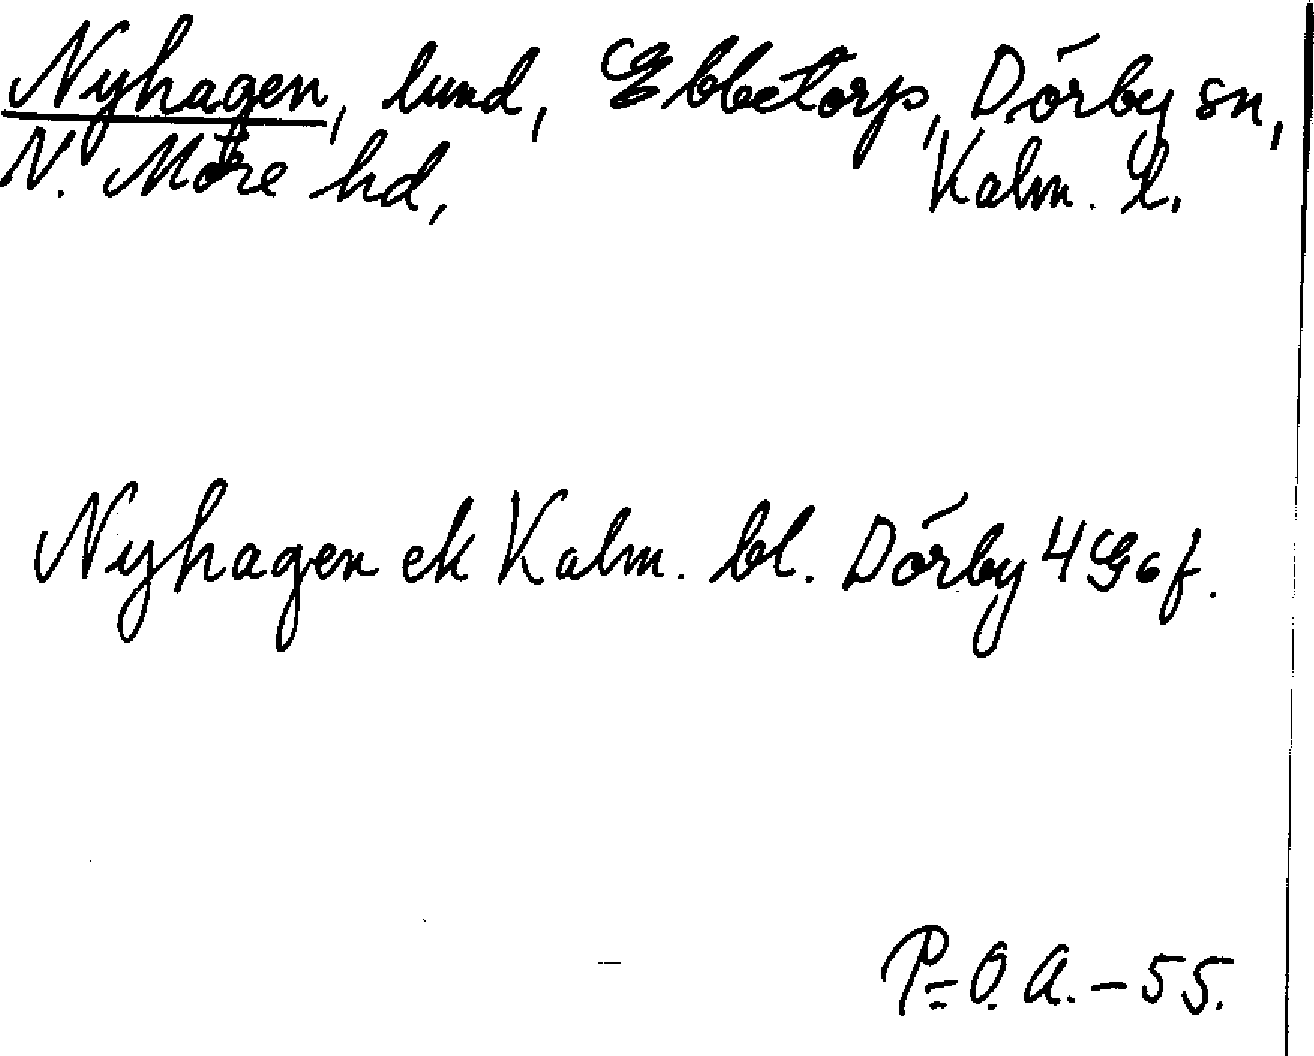 Nyhagen, lund, Ebbetorp, Dörby sn,
N. Möre hd, Kalm. l.
Nyhagen ek Kalm. bl. Dörby 4 G6 f.
P=O. A. – 55.